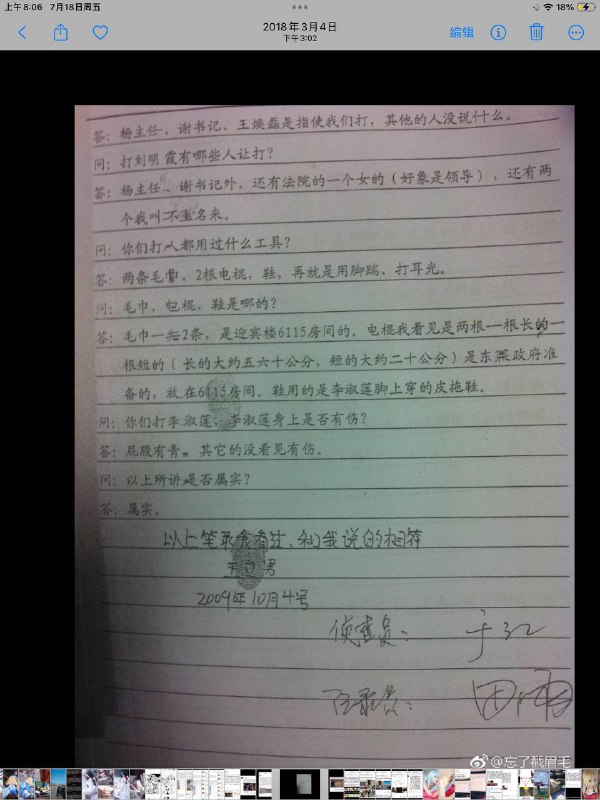 上午8:06 7月18日周五
18%
2018年3月4日
下午3:02
编辑
答：杨主任、谢书记、王焕磊是指使我们打，其他的人没说什么。
问：打刘明霞有哪些人让打？
答：杨主任、谢书记外，还有法院的一个女的（好象是领导），还有两
个我叫不上名来。
问：你们打人都用过什么工具？
答：两条毛巾、2根电棍，鞋，再就是用脚踹、打耳光。
问：毛巾、电棍、鞋是哪的？
答：毛巾一共2条，是迎宾楼6115房间的。电棍我看见是两根一根长的一
根短的（长的大约五六十公分，短的大约二十公分）是东莱政府准
备的，放在6115房间。鞋用的是李淑莲脚上穿的皮拖鞋。
问：你们打李淑莲，李淑莲身上是否有伤？
答：屁股有青。其它的没看见有伤。
问：以上所讲是否属实？
答：属实。
以上笔录我看过，和我说的相符
男
2009年10月4号
侦查员： 于江
田
@忘了戳眉毛